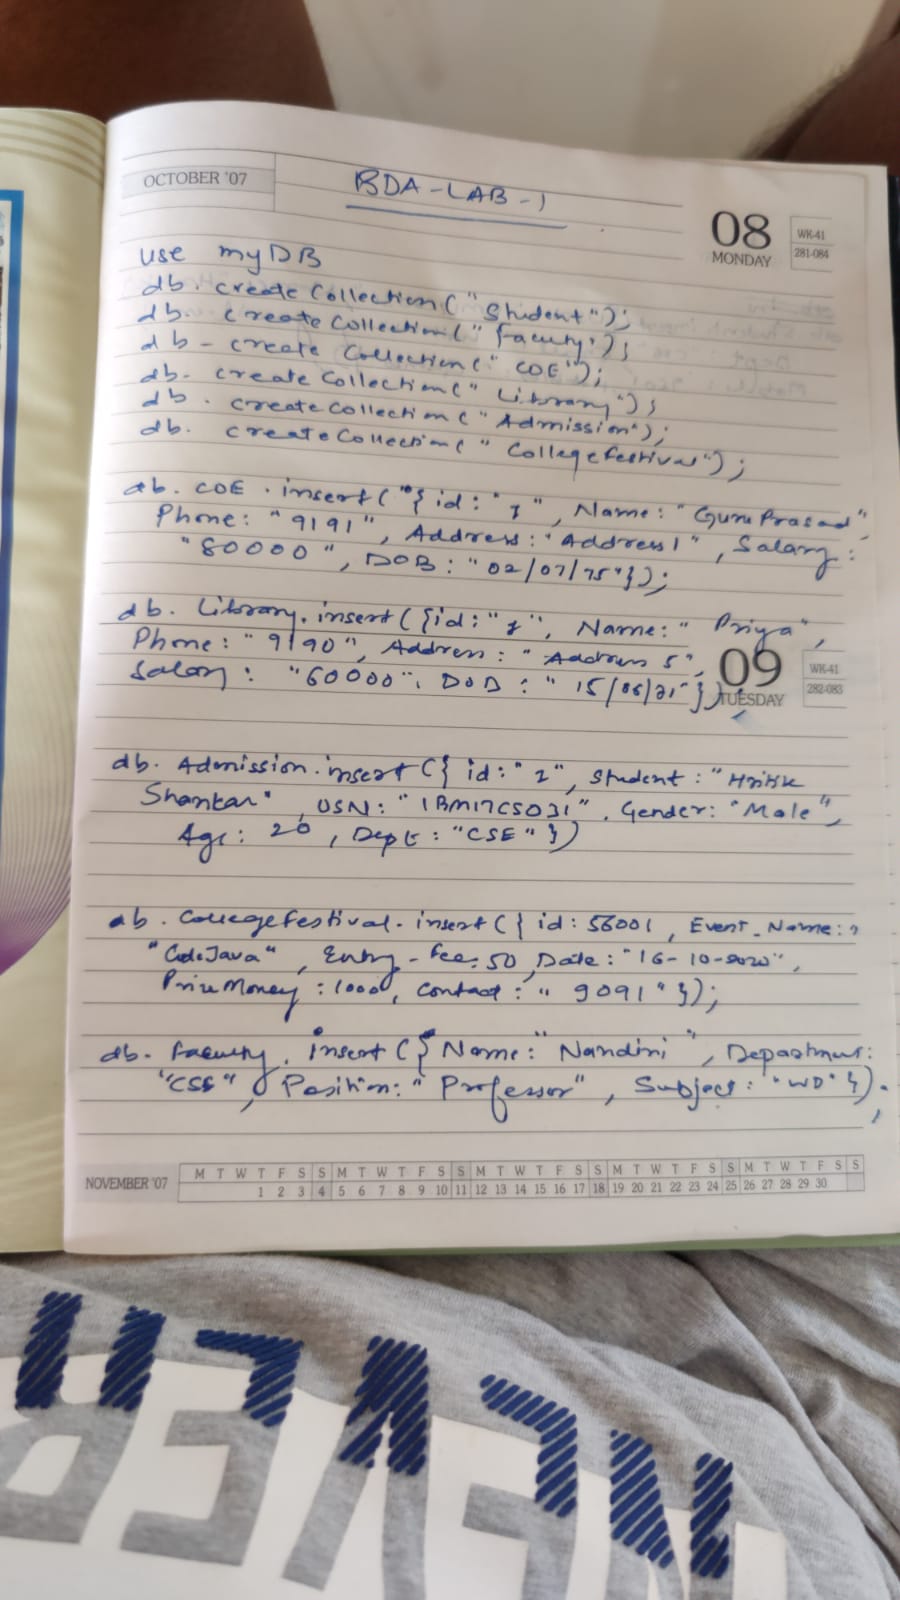 OCTOBER '07
BDA-LAB-1
08
MONDAY
WK-41
281-084
use myDB
db. create Collection ("Student");
db. create Collection (" faculty");
db - create Collection (" COE");
db. create Collection (" Library");
db. create Collection ("Admission");
db. create Collection (" Collegefestival");
db. COE . insert ("{ id : "1", Name : "Guru Prasad",
Phone : "9191", Address : "Address1", Salary :
"80000", DOB : "02/07/75"});
db. Library. insert ({id : "1", Name : " Priya",
Phone : "9190", Address : " Address 5",
Salary : "60000", DOB : " 15/06/21"});
09
TUESDAY
WK-41
282-083
db. Admission. insert ({ id : "1", Student : "Hritik
Shankar", USN : "1BM17CS031", Gender : "Male",
Age : 20, Dept : "CSE" })
db. Collegefestival. insert ({ id : 56001, Event_Name : "
"CodeJava", Entry-fee : 50, Date : "16-10-2020",
PrizeMoney : 1000, Contact : " 9091" });
db. faculty. insert ({ Name : "Nandini", Department :
"CSE", Position : " Professor", Subject : "WD" });
NOVEMBER '07
M T W T F S S M T W T F S S M T W T F S S M T W T F S S M T W T F S S
1 2 3 4 5 6 7 8 9 10 11 12 13 14 15 16 17 18 19 20 21 22 23 24 25 26 27 28 29 30
NEVER